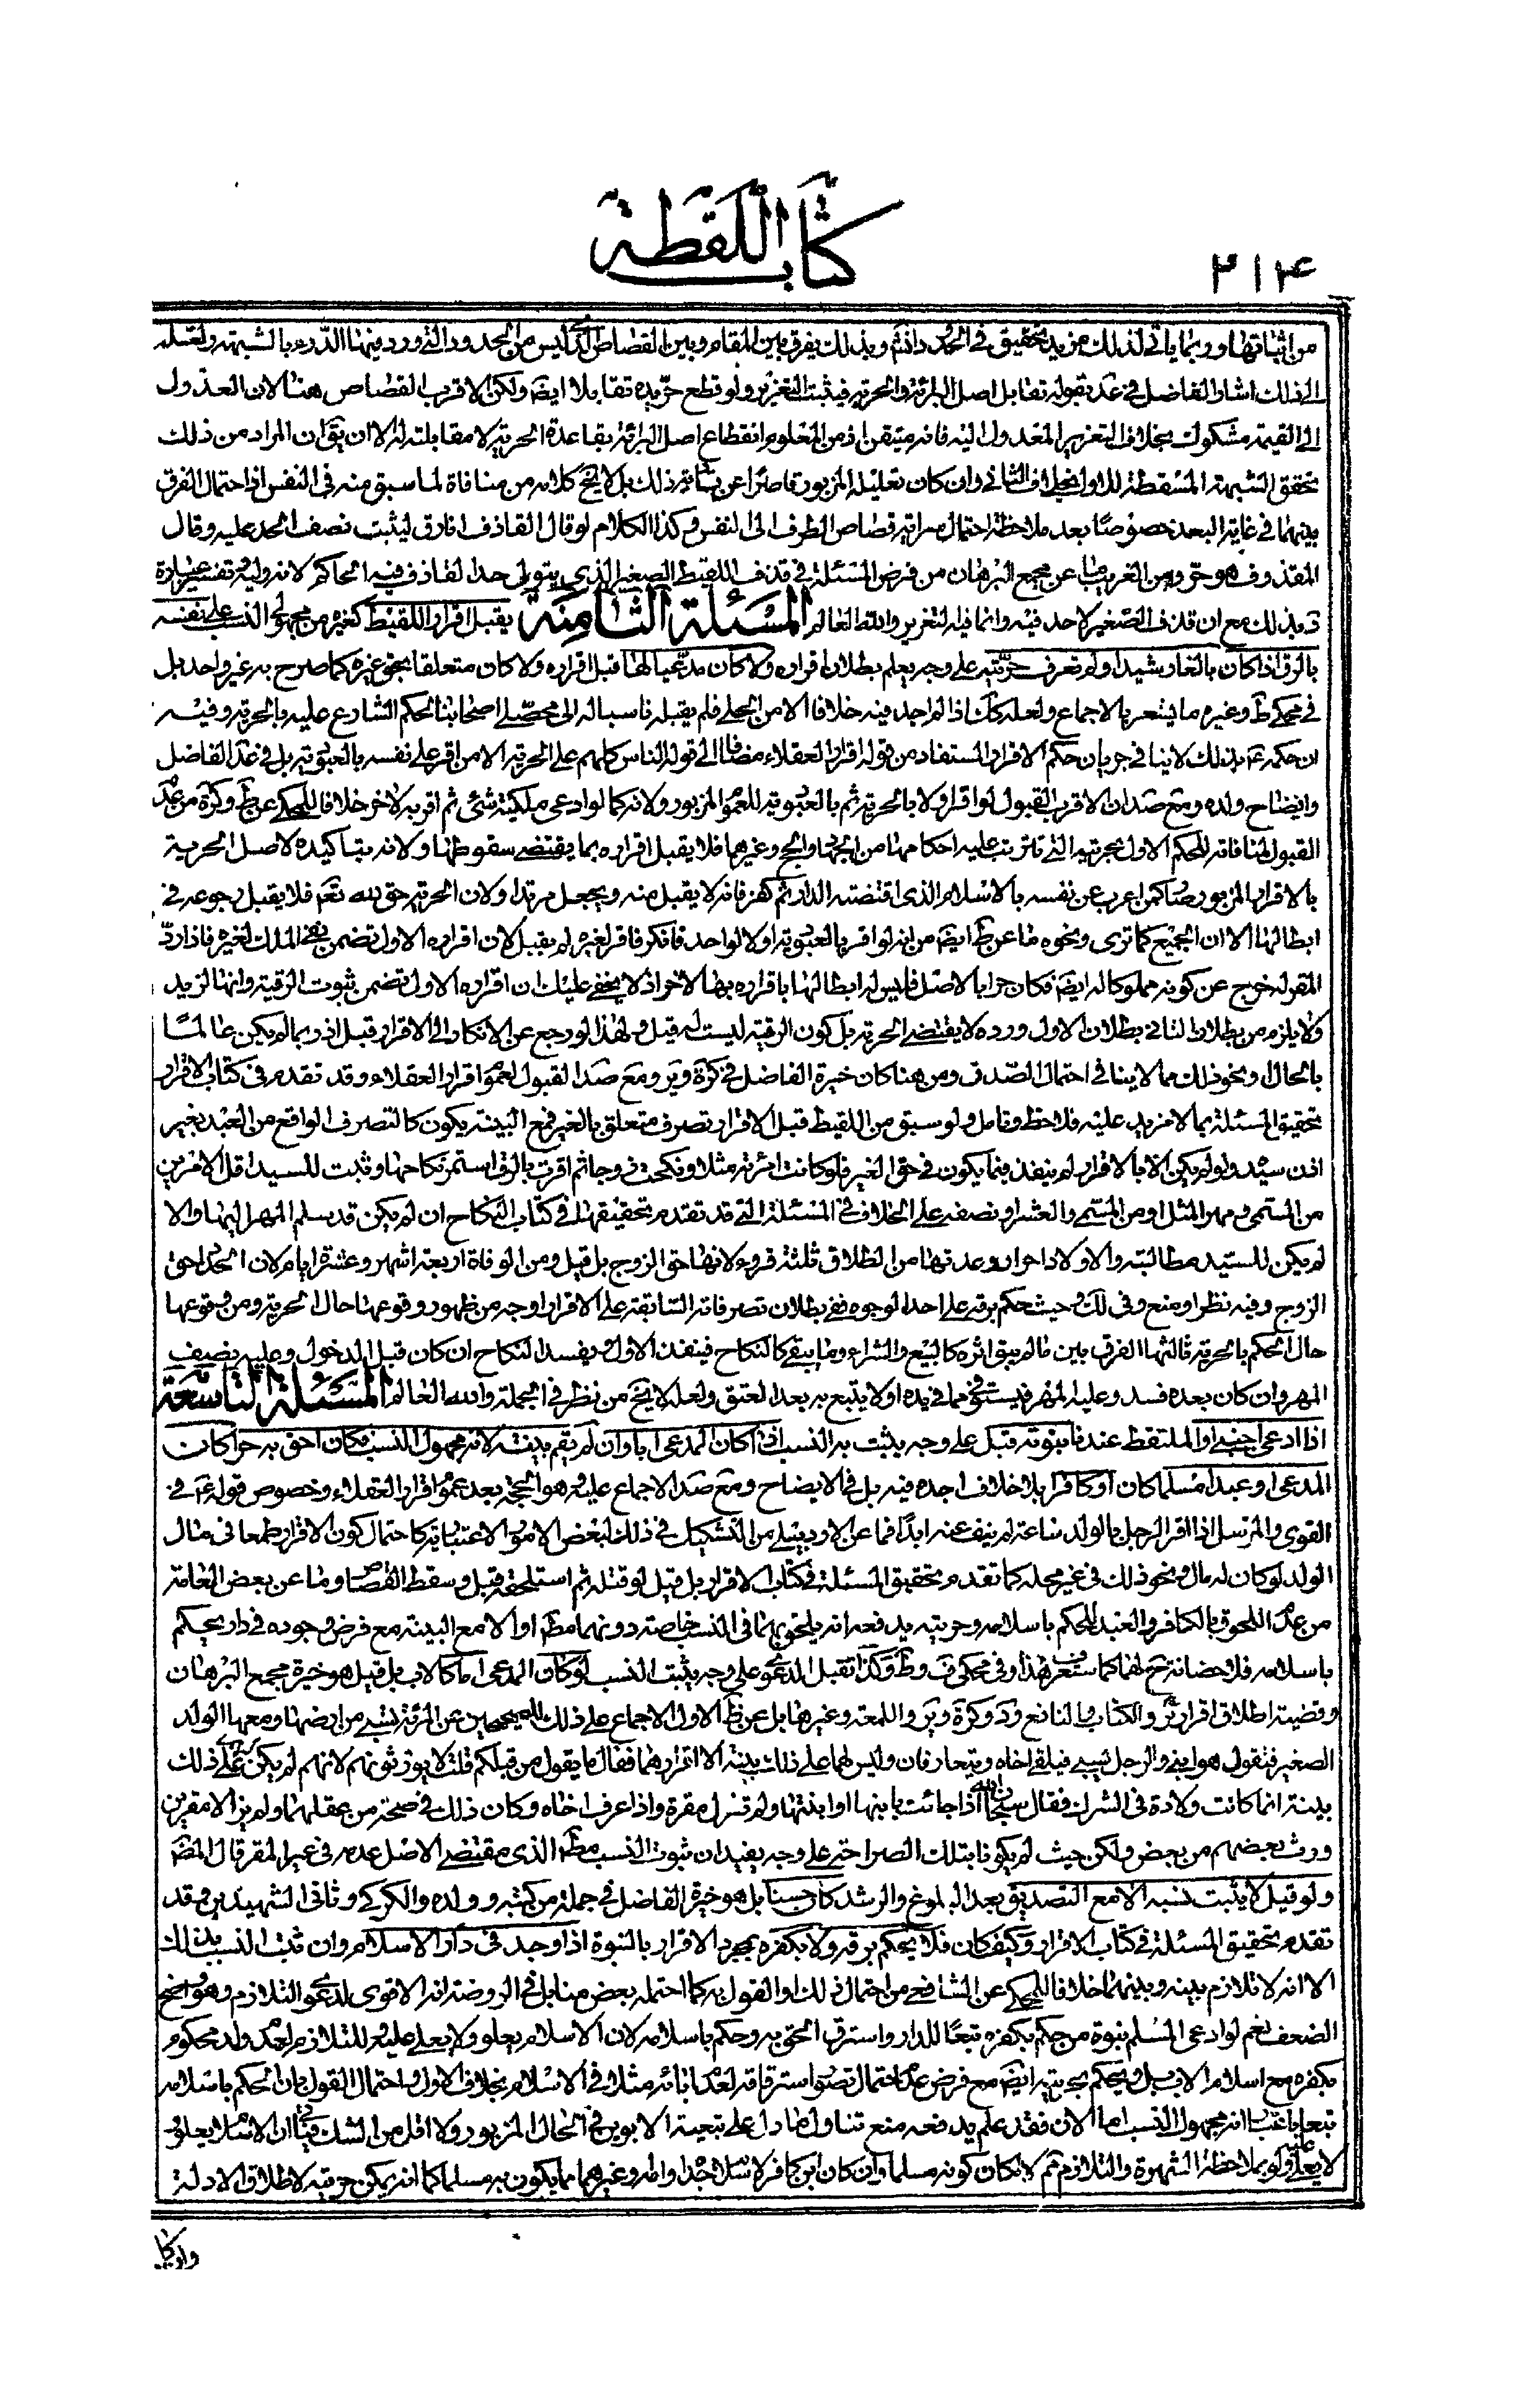 كتاب اللقطة
٢١٤
من اثباتها وربما ياتي لذلك مزيد تحقيق في الحدود انش وبذلك يفرق بين المقام وبين القصاص الذي ليس من الحدود التي ورد فيها الدرء بالشبهة ولعله
الى ذلك اشار الفاضل في عد بقوله تقابل اصل البرائة والحرية فيثبت التغزير ولو قطع حر يده تقابلا ايضا ولكن الاقرب القصاص هنا لان العدول
الى القيمة مشكوك بخلاف التعزير المعدول اليه فانه متيقن اذ من المعلوم انقطاع اصل البرائة بقاعدة الحرية لا مقابلته له الا ان يق ان المراد من ذلك
تحقق الشبهة المسقطة للاول بخلاف الثاني وان كان تعليله المزبور قاصرا عن تادية ذلك بل لا يخ كلامه من منافاة لما سبق منه في النفس اذ احتمال الفرق
بينهما في غاية البعد خصوصا بعد ملاحظة احتمال سراية قصاص الطرف الى النفس وكذا الكلام لو قال القاذف انا رق ليثبت نصف الحد عليه وقال
المقذوف هو حر ومن الغريب ما عن مجمع البرهان من فرض المسئلة في قذف اللقيط الصغير الذي يتولى حد القاذف فيه الحاكم لانه وليه وتفسير عبارة
عد بذلك مع ان قذف الصغير لا حد فيه وانما فيه التعزير والله العالم المسئلة الثامنة يقبل اقرار اللقيط كغيره من مجهولي النسب على نفسه
بالرق اذا كان بالغا رشيدا ولم تعرف حريته على وجه يعلم بطلان اقراره ولا كان مدعيا لها قبل اقراره ولا كان متعلقا بحق غيره كما صرح به غير واحد بل
في محكي ط وغيره ما يشعر بالاجماع ولعله كك اذ لم اجد فيه خلافا الا من الحلي فلم يقبله ناسبا له الى محصلي اصحابنا لحكم الشارع عليه بالحرية وفيه
ان حكمه ع بذلك لا ينافي جريان حكم الاقرار المستفاد من قوله اقرار العقلاء مضافا الى قوله الناس كلهم على الحرية الا من اقر على نفسه بالعبودية بل في عد الفاضل
وايضاح ولده ومع صد ان الاقرب القبول لو اقر اولا بالحرية ثم بالعبودية للعموم المزبور ولانه كما لو ادعى ملكية شئ ثم اقر به لاخر خلافا للمحكي عن ط وكرة من عدم
القبول لمنافاته للحكم الاول بحريته التي تترتب عليه احكامها من الجهاد والحج وغيرهما فلا يقبل اقراره بما يقتضي سقوطها ولانه بتاكيده لاصل الحرية
بالاقرار المزبور صار كمن اعرب عن نفسه بالاسلام الذي اقتضته الدار ثم كفر فانه لا يقبل منه ويجعل مرتدا ولان الحرية حق لله تعم فلا يقبل رجوعه في
ابطالها الا ان الجميع كما ترى ونحوه ما عن ط ايضا من انه لو اقر بالعبودية اولا لواحد فانكر فاقر لغيره لم يقبل لان اقراره الاول تضمن نفي الملك لغيره فاذا رد
المقر له خرج عن كونه مملوكا له ايضا فكان حرا بالاصل فليس له ابطالها باقراره بها لاخر اذ لا يخفى عليك ان اقراره الاول تضمن ثبوت الرقية وانها لزيد
ولا يلزم من بطلان الثاني بطلان الاول ورده لا يقتضي الحرية بل كون الرقية ليست له قيل ولهذا لو رجع عن الانكار الى الاقرار قبل اذ ربما لم يكن عالما
بالحال ونحو ذلك مما لا ينافي احتمال الصدق ومن هنا كان خيرة الفاضل في كرة وير ومع صد القبول لعموم اقرار العقلاء وقد تقدم في كتاب الاقرار
تحقيق المسئلة بما لا مزيد عليه فلاحظ وتامل ولو سبق من اللقيط قبل الاقرار تصرف متعلق بالغير فمع البينة يكون كالتصرف الواقع من العبد بغير
اذن سيده ولو لم يكن الا بالاقرار لم ينفذ فيما يكون في حق الغير فلو كانت امرئة مثلا ونكحت زوجا ثم اقرت بالرق استمر نكاحها وثبت للسيد اقل الامرين
من المسمى ومهر المثل او من المسمى والعشر او نصفه على الخلاف في المسئلة التي قد تقدم تحقيقها في كتاب النكاح ان لم يكن قد سلم المهر اليها والا
لم يكن للسيد مطالبته والاولاد احرار وعدتها من الطلاق ثلثة قروء لانها حق الزوج بل قيل ومن الوفاة اربعة اشهر وعشرة ايام لان الحداد حق
الزوج وفيه نظر او منع وفي لك وحيث حكم برقه على احد الوجوه ففي بطلان تصرفاته السابقة على الاقرار اوجه من ظهور وقوعها حال الحرية ومن وقوعها
حال الحكم بالحرية ثالثها الفرق بين ما لم يبق اثره كالبيع والشراء وما يبقى كالنكاح فينفذ الاول ويفسد النكاح ان كان قبل الدخول وعليه نصف
المهر وان كان بعده فسد وعليه المهر فيستوفى مما في يده او لا يتبع به بعد العتق ولعله لا يخ من نظر في الجملة والله العالم المسئلة التاسعة
اذا ادعى اجنبي او الملتقط عندنا بنوته قبل على وجه يثبت به النسب اذا كان المدعي ابا وان لم يقم بينة لانه مجهول النسب فكان احق به حرا كان
المدعي او عبدا مسلما كان او كافرا بلا خلاف اجده فيه بل في الايضاح ومع صد الاجماع عليه وهو الحجة بعد عموم اقرار العقلاء وخصوص قوله ع في
القوي والمرسل اذا اقر الرجل بالولد ساعة لم ينف عنه ابدا فما عن الاردبيلي من التشكيك في ذلك لبعض الامور الاعتبارية كاحتمال كون الاقرار طمعا في مال
الولد لو كان له مال ونحو ذلك في غير محله كما تقدم تحقيق المسئلة في كتاب الاقرار بل قيل لو قتله ثم استلحقه قبل وسقط القصاص وما عن بعض العامة
من عدم اللحوق بالكافر والعبد للحكم باسلامه وحريته يدفعه انه يلحق بهما في النسب خاصة دونهما مطلقا او الا مع البينة مع فرض وجوده في دار يحكم
باسلامه فلا حضانة ح لهما كما ستعرف هذا وفي محكي ف وط وكذا تقبل الدعوى على وجه يثبت النسب لو كان المدعي اما كالاب بل قيل هو خيرة مجمع البرهان
وقضية اطلاق اقرار ئر والكتاب والنافع ود وكرة وير واللمعة وغيرها بل عن ظ الاول الاجماع على ذلك للصحيحين عن المرئة تسبى من ارضها ومعها الولد
الصغير فتقول هو ابني والرجل يسبى فيلقى اخاه ويتعارفان وليس لهما على ذلك بينة الا اقرارهما فقال ما يقول من قبلكم قلت لا يورثونهم لانهم لم يكن لهم على ذلك
بينة انما كانت ولادة في الشرك فقال سبحان الله اذا جائت بابنها او ابنتها ولم تزل مقرة واذا عرف اخاه وكان ذلك في صحة من عقلهما ولم يزالا مقرين
ورث بعضهم من بعض ولكن حيث لم يكونا بتلك الصراحة على وجه يفيدان ثبوت النسب مطلقا الذي مقتضى الاصل عدمه في غير المقر قال المصنف
ولو قيل لا يثبت نسبه الا مع التصديق بعد البلوغ والرشد كان حسنا بل هو خيرة الفاضل في جملة من كتبه وولده والكركي وثاني الشهيدين وقد
تقدم تحقيق المسئلة في كتاب الاقرار وكيف كان فلا يحكم برقه ولا بكفره بمجرد الاقرار بالبنوة اذا وجد في دار الاسلام وان ثبت النسب بذلك
الا انه لا تلازم بينه وبينهما خلافا للمحكي عن الشافعي من احتمال ذلك او القول به كما احتمله بعض منا بل في الروضة انه الاقوى لدعوى التلازم وهو واضح
الضعف نعم لو ادعى المسلم بنوة من حكم بكفره تبعا للدار واسترق الحق به وحكم باسلامه لان الاسلام يعلو ولا يعلى عليه وللتلازم لعدم ولد محكوم
بكفره مع اسلام الاب بل ويحكم بحريته ايضا مع فرض عدم احتمال تصور استرقاقه لعدم ابائه مثلا في الاسلام بخلاف الاول واحتمال القول بان الحكم باسلامه
تبعا باعتبار انه مجهول النسب اما الان فقد علم يدفعه منع تناول ما دل على تبعية الابوين في الحال المزبور ولا اقل من الشك فيبقى ان الاسلام يعلو
لا يعلى عليه ولو بملاحظة الشهرة والتلازم ثم لامكان كونه مسلما وان كان ابن كافر لاسلام جد او ام وغيرهما مما يكون به مسلما كما انه يمكن حريته لاطلاق الادلة